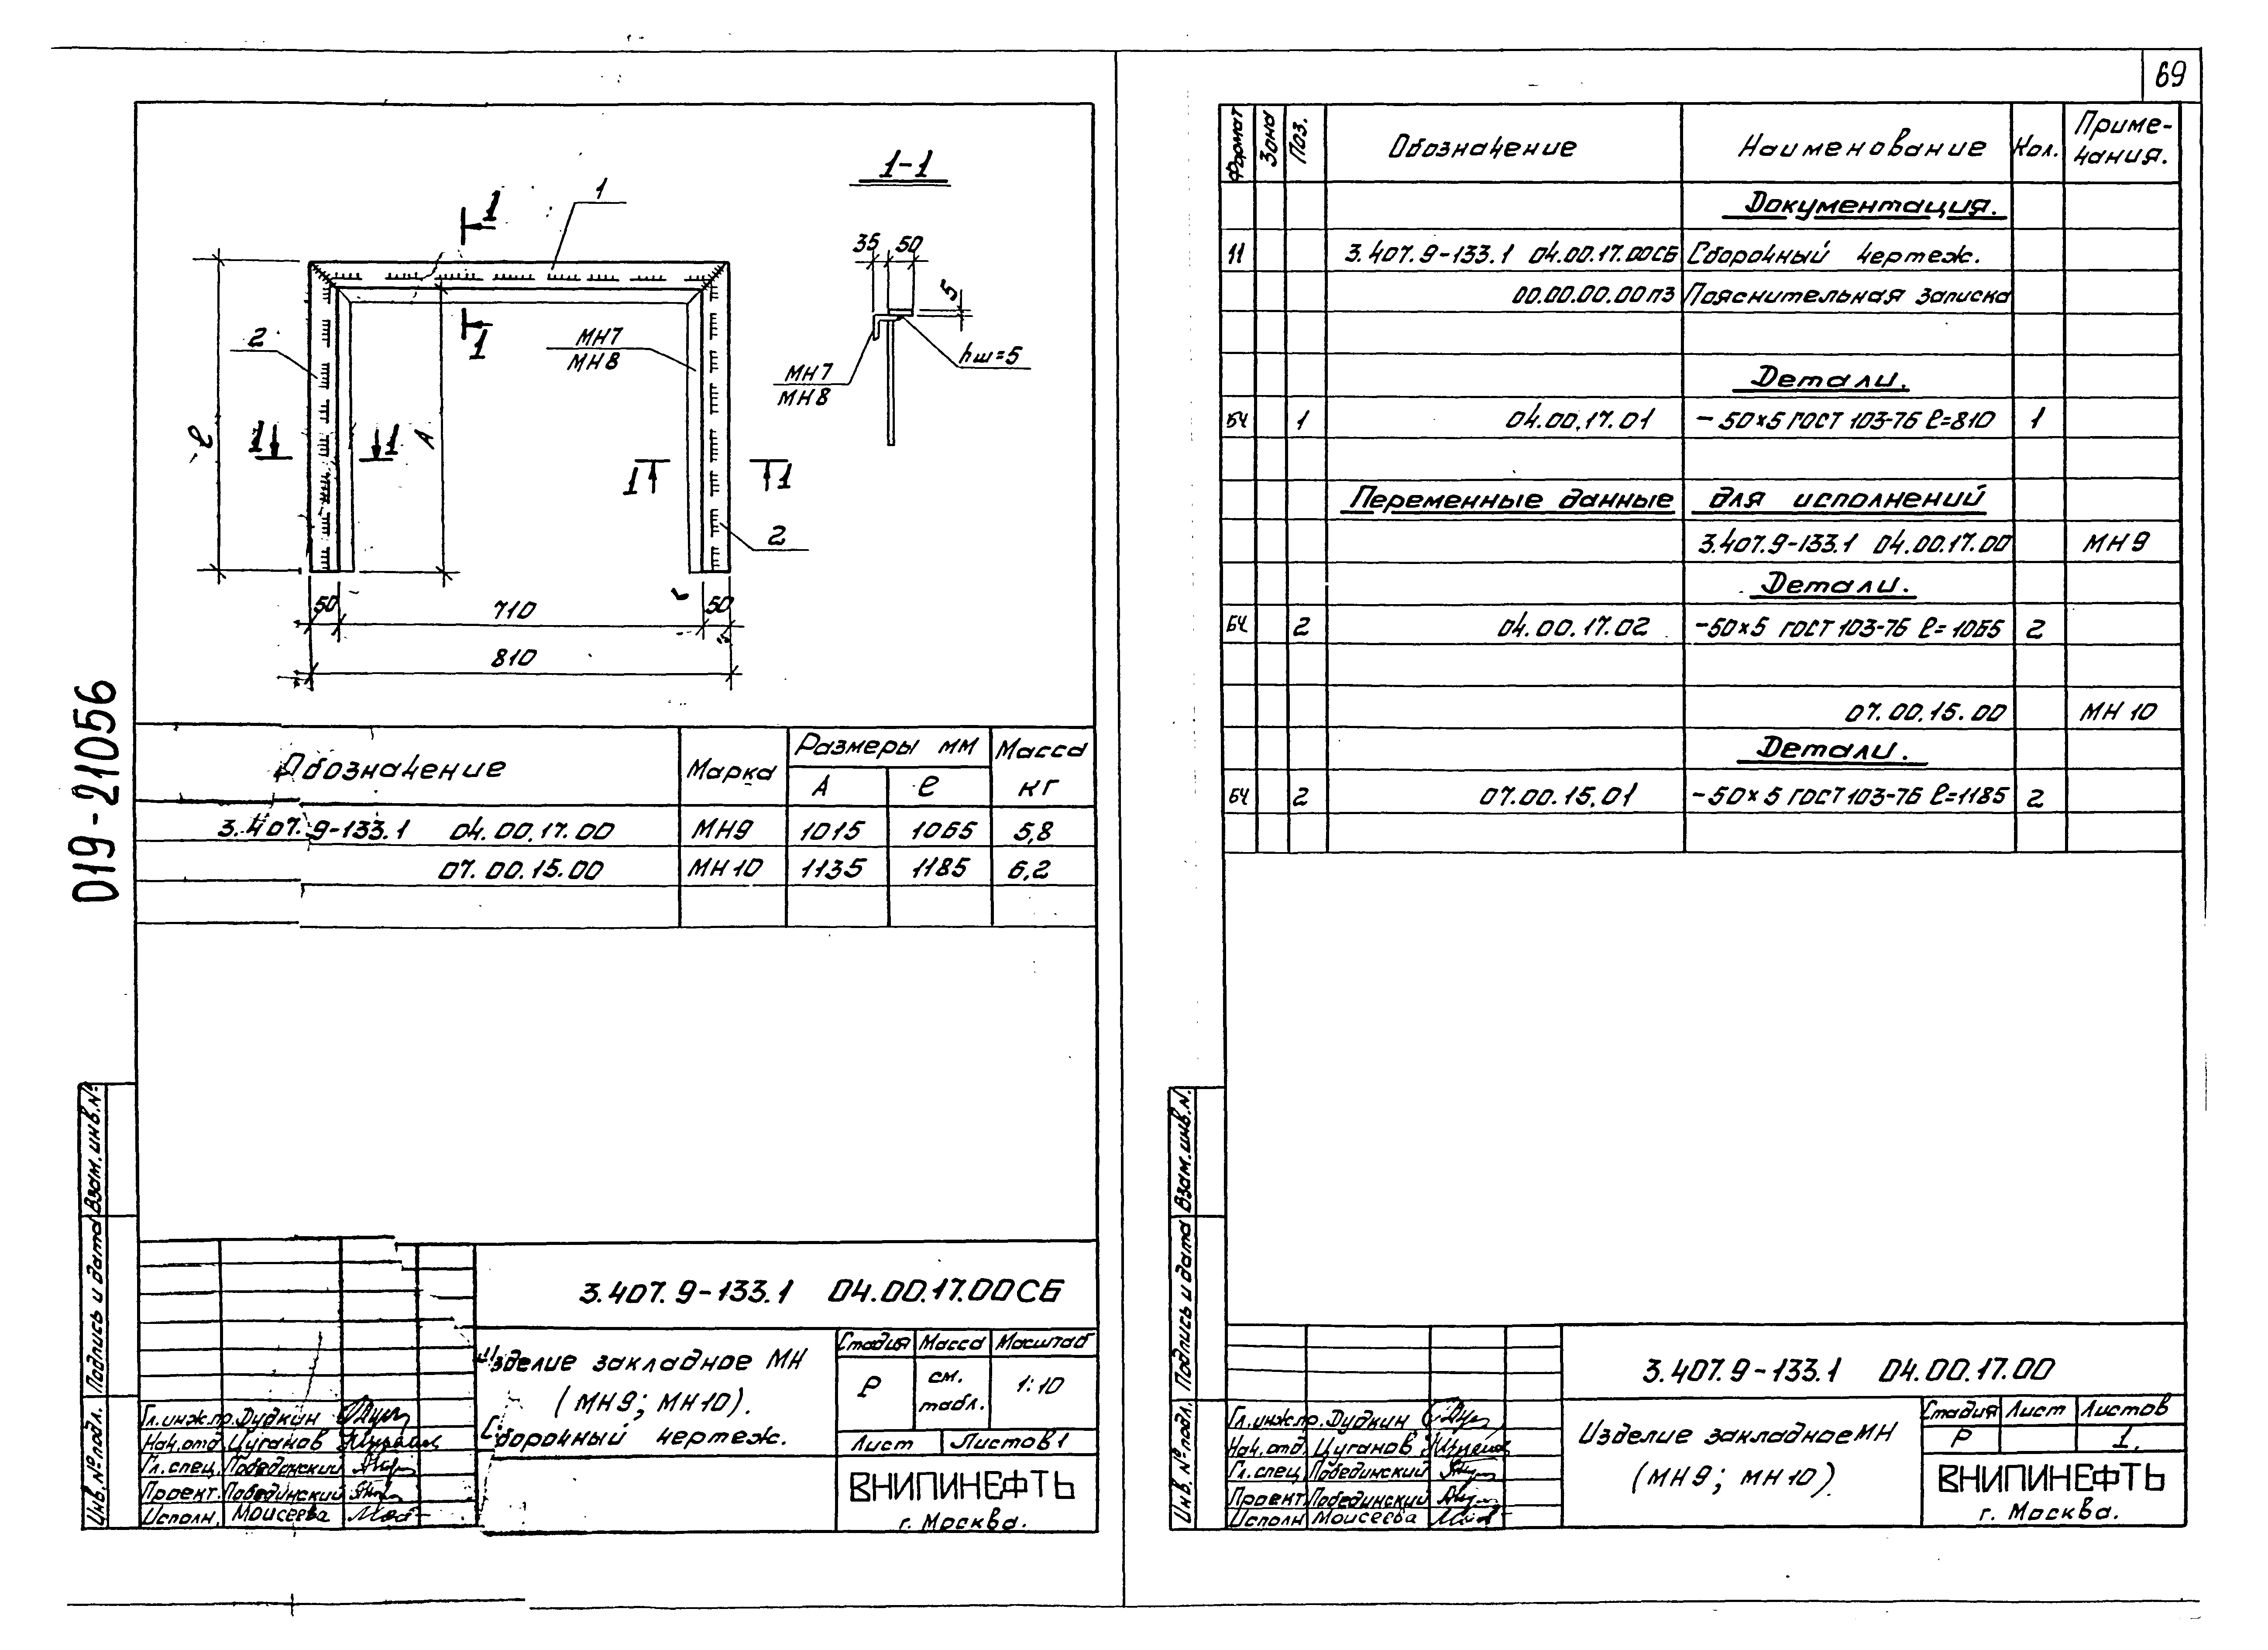 69
1-1
1
1
1
2
МН7
МН8
35 50
5
МН7
МН8
hш=5
ℓ
1 1
А
1 1
2
50 710 50
810
019-21056
Обозначение Марка Размеры мм Масса кг
А ℓ
3.407.9-133.1 04.00.17.00 МН9 1015 1065 5,8
07.00.15.00 МН10 1135 1185 6,2
Инв.№подл. Подпись и дата Взам.инв.№
3.407.9-133.1 04.00.17.00СБ
Изделие закладное МН
(МН9; МН10).
Сборочный чертеж.
Стадия Масса Масштаб
Р см. табл. 1:10
Лист Листов 1
ВНИПИНЕФТЬ
г. Москва.
Гл.инж.пр. Дудкин
Нач.отд. Цуганов
Гл.спец. Побединский
Проект. Побединский
Исполн. Моисеева
Формат Зона Поз. Обозначение Наименование Кол. Приме-
чания.
Документация.
11 3.407.9-133.1 04.00.17.00СБ Сборочный чертеж.
00.00.00.00ПЗ Пояснительная записка
Детали.
БЧ 1 04.00.17.01 -50×5 ГОСТ 103-76 ℓ=810 1
Переменные данные для исполнений
3.407.9-133.1 04.00.17.00 МН9
Детали.
БЧ 2 04.00.17.02 -50×5 ГОСТ 103-76 ℓ=1065 2
07.00.15.00 МН10
Детали.
БЧ 2 07.00.15.01 -50×5 ГОСТ 103-76 ℓ=1185 2
Инв.№подл. Подпись и дата Взам.инв.№.
3.407.9-133.1 04.00.17.00
Изделие закладное МН
(МН9; МН10).
Стадия Лист Листов
Р 1.
ВНИПИНЕФТЬ
г. Москва.
Гл.инж.пр. Дудкин
Нач.отд. Цуганов
Гл.спец. Побединский
Проект. Побединский
Исполн Моисеева